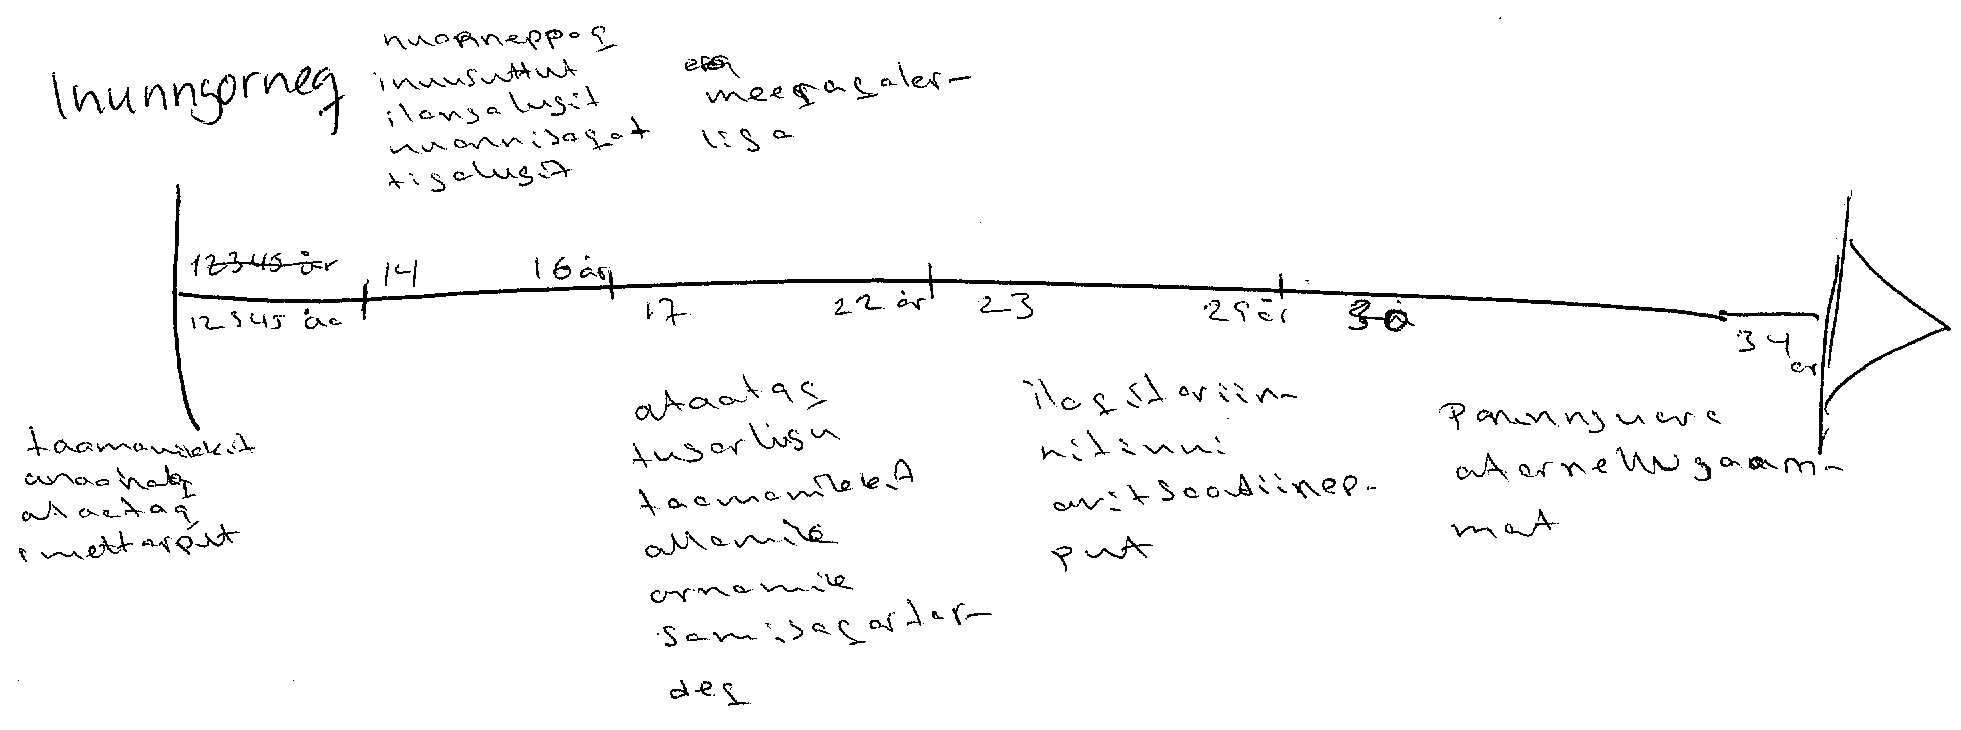 Inunngorneq
nuanneppoq
inuusuttut
ilangalugit
nuannisaqat
tigalugit
meeqaqaler-
liga
12345 år
14
16 år
12345 år
17
22 år
23
29 år
30
34 år
taamanikkit
anaanaq
ataataq
imettarput
ataataq
tusarligu
taamanikkit
allamik
arnamik
samisaqartar-
deq
ilaqitariin-
nitinni
avitsoatiinep-
put
Paninnguara
atornelluga am-
mat